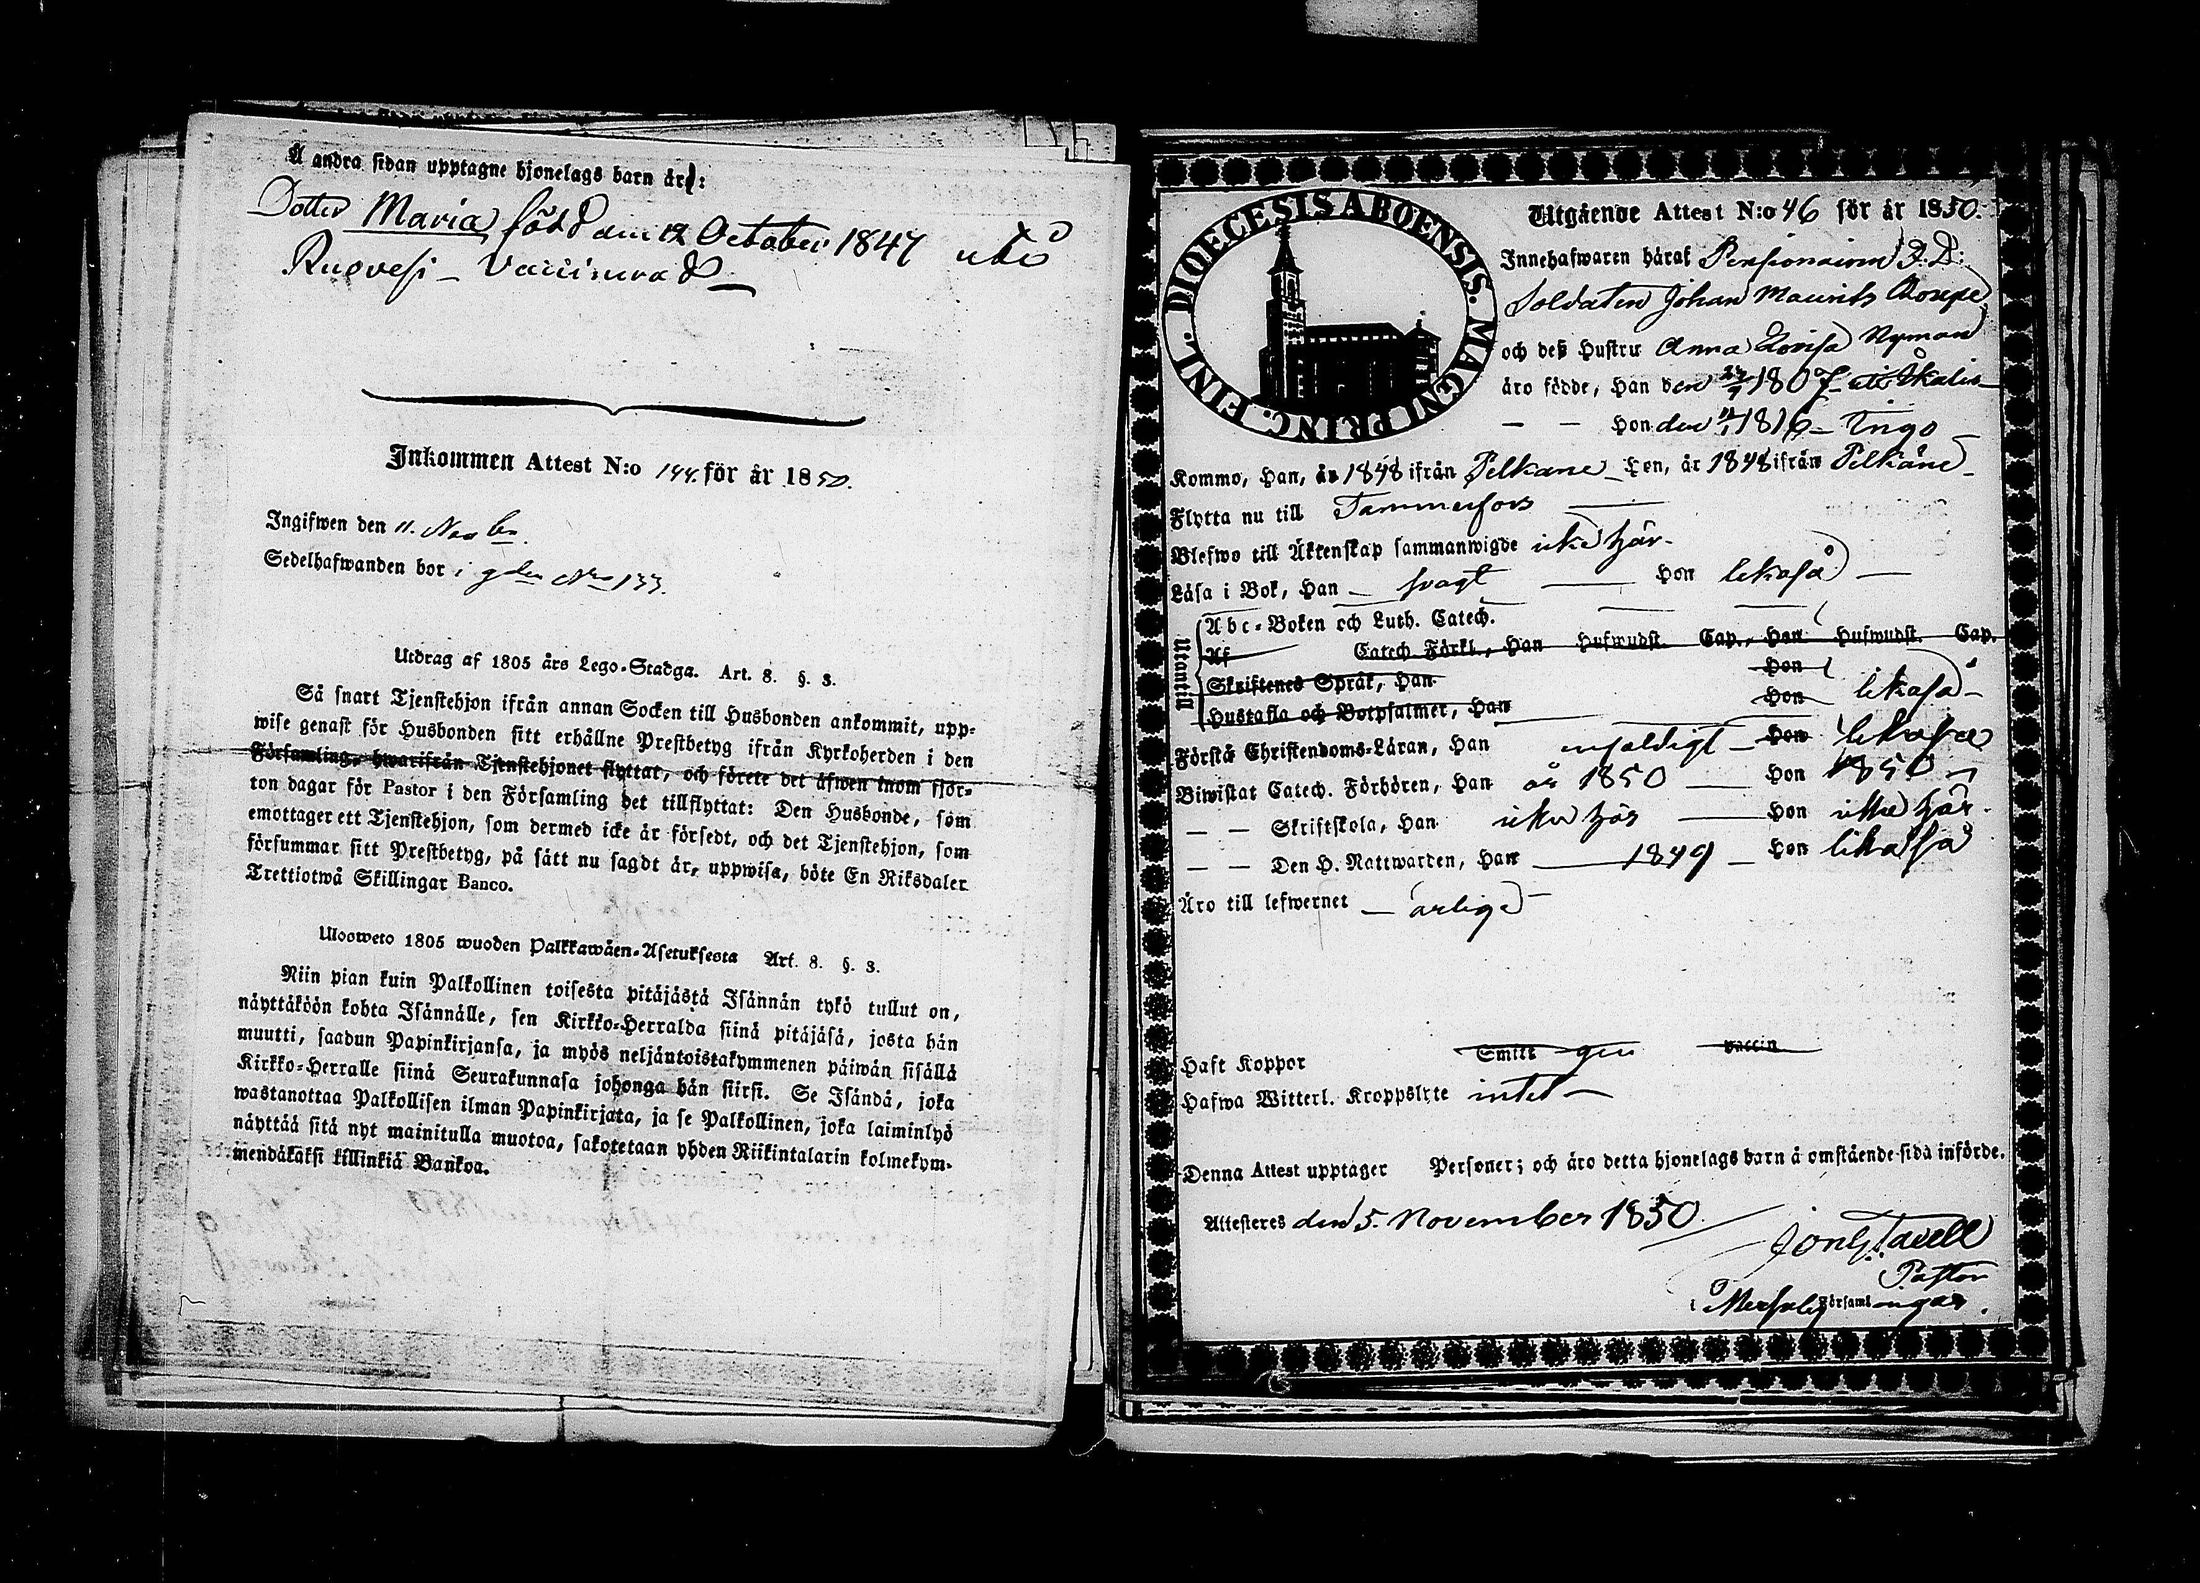 Å andra sidan upptagne hjonelags barn är:
Dotter Maria född den 12 October 1847 uti
Ruovesi – Vaccinerad –
Inkommen Attest N:o 144. för år 1850.
Ingifwen den 11. Novbr.
Sedelhafwanden bor i gden No 133.
Utdrag af 1805 års Lego-Stadga. Art. 8. §. 3.
Så snart Tjenstehjon ifrån annan Socken till Husbonden ankommit, upp-
wise genast för Husbonden sitt erhållne Prestbetyg ifrån Kyrkoherden i den
Församling, hwarifrån Tjenstehjonet flyttat, och förete det äfwen inom fjor-
ton dagar för Pastor i den Församling det tillflyttat: Den Husbonde, som
emottager ett Tjenstehjon, som dermed icke är försedt, och det Tjenstehjon, som
försummar sitt Prestbetyg, på sätt nu sagdt är, uppwisa, böte En Riksdaler
Trettiotwå Skillingar Banco.
Uloosweto 1805 wuoden Palkkawäen-Asetuksesta Art. 8. §. 3.
Niin pian kuin Palkollinen toisesta pitäjästä Isännän tykö tullut on,
näyttäköön kohta Isännälle, sen Kirkko-Herralda siinä pitäjäsä, josta hän
muutti, saadun Papinkirjansa, ja myös neljäntoistakymmenen päiwän sisällä
Kirkko-Herralle siinä Seurakunnasa johonga hän siirsi. Se Isändä, joka
wastanottaa Palkollisen ilman Papinkirjata, ja se Palkollinen, joka laiminlyö
näyttää sitä nyt mainitulla muotoa, sakotetaan yhden Riikintalarin kolmekym-
mendäkaksi killinkiä Bankoa.
DIOECESIS ABOENSIS. MAGNI PRINC. FINL.
Utgående Attest N:o 46 för år 1850.
Innehafwaren häraf Pensionairen F. D:
Soldaten Johan Maurits
och deß Hustru Anna Lovisa Nyman
äro födde, Han den 1807 uti Ikalis
— — Hon den 1816 – Tingo
Kommo, Han, år 1848 ifrån Pelkäne – Hon, år 1848 ifrån Pelkäne –
Flytta nu till Tammerfors
Blefwo till Äktenskap sammanwigde icke här –
Läsa i Bok, Han – svagt — Hon likaså –
Utantill
Abc-Boken och Luth. Catech.
Af Catech. Förkl., Han Hufwudst. Cap., Hon Hufwudst. Cap.
Skriftenes Språk, Han Hon
Hustafla och Botpsalmer, Han Hon likaså –
Förstå Christendoms-Läran, Han enfaldigt – Hon likaså
Biwistat Catech. Förhören, Han år 1850 — Hon 1850 –
— — Skriftskola, Han icke här — Hon icke här –
— — Den H. Nattwarden, Han — 1849 – Hon likaså
Äro till lefwernet – ärlige –
Haft Koppor Smitt gen vaccin
Hafwa Witterl. Kroppslyte intet –
Denna Attest upptager Personer; och äro detta hjonelags barn å omstående sida införde.
Attesteres den 5. November 1850.
Pastor
i Församlingar.